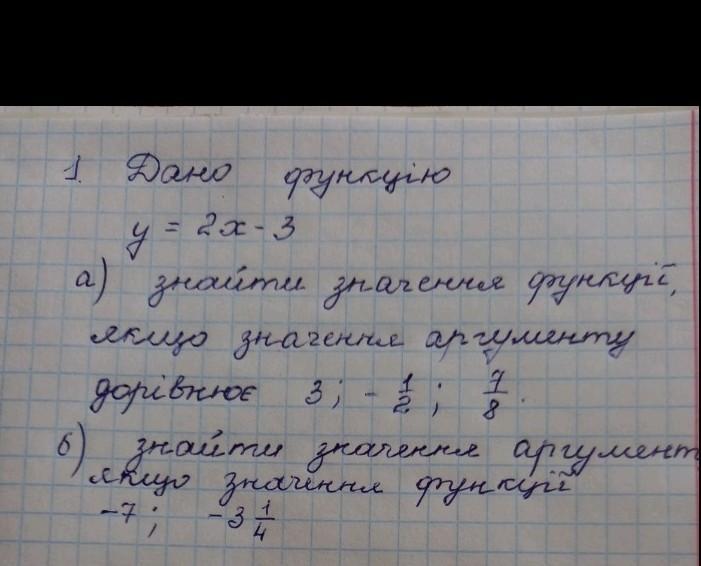 1. Дано функцію
y = 2x - 3
а) знайти значення функції,
якщо значення аргументу
дорівнює 3; - 1/2; 7/8.
б) знайти значення аргумент
якщо значення функції
-7; -3 1/4